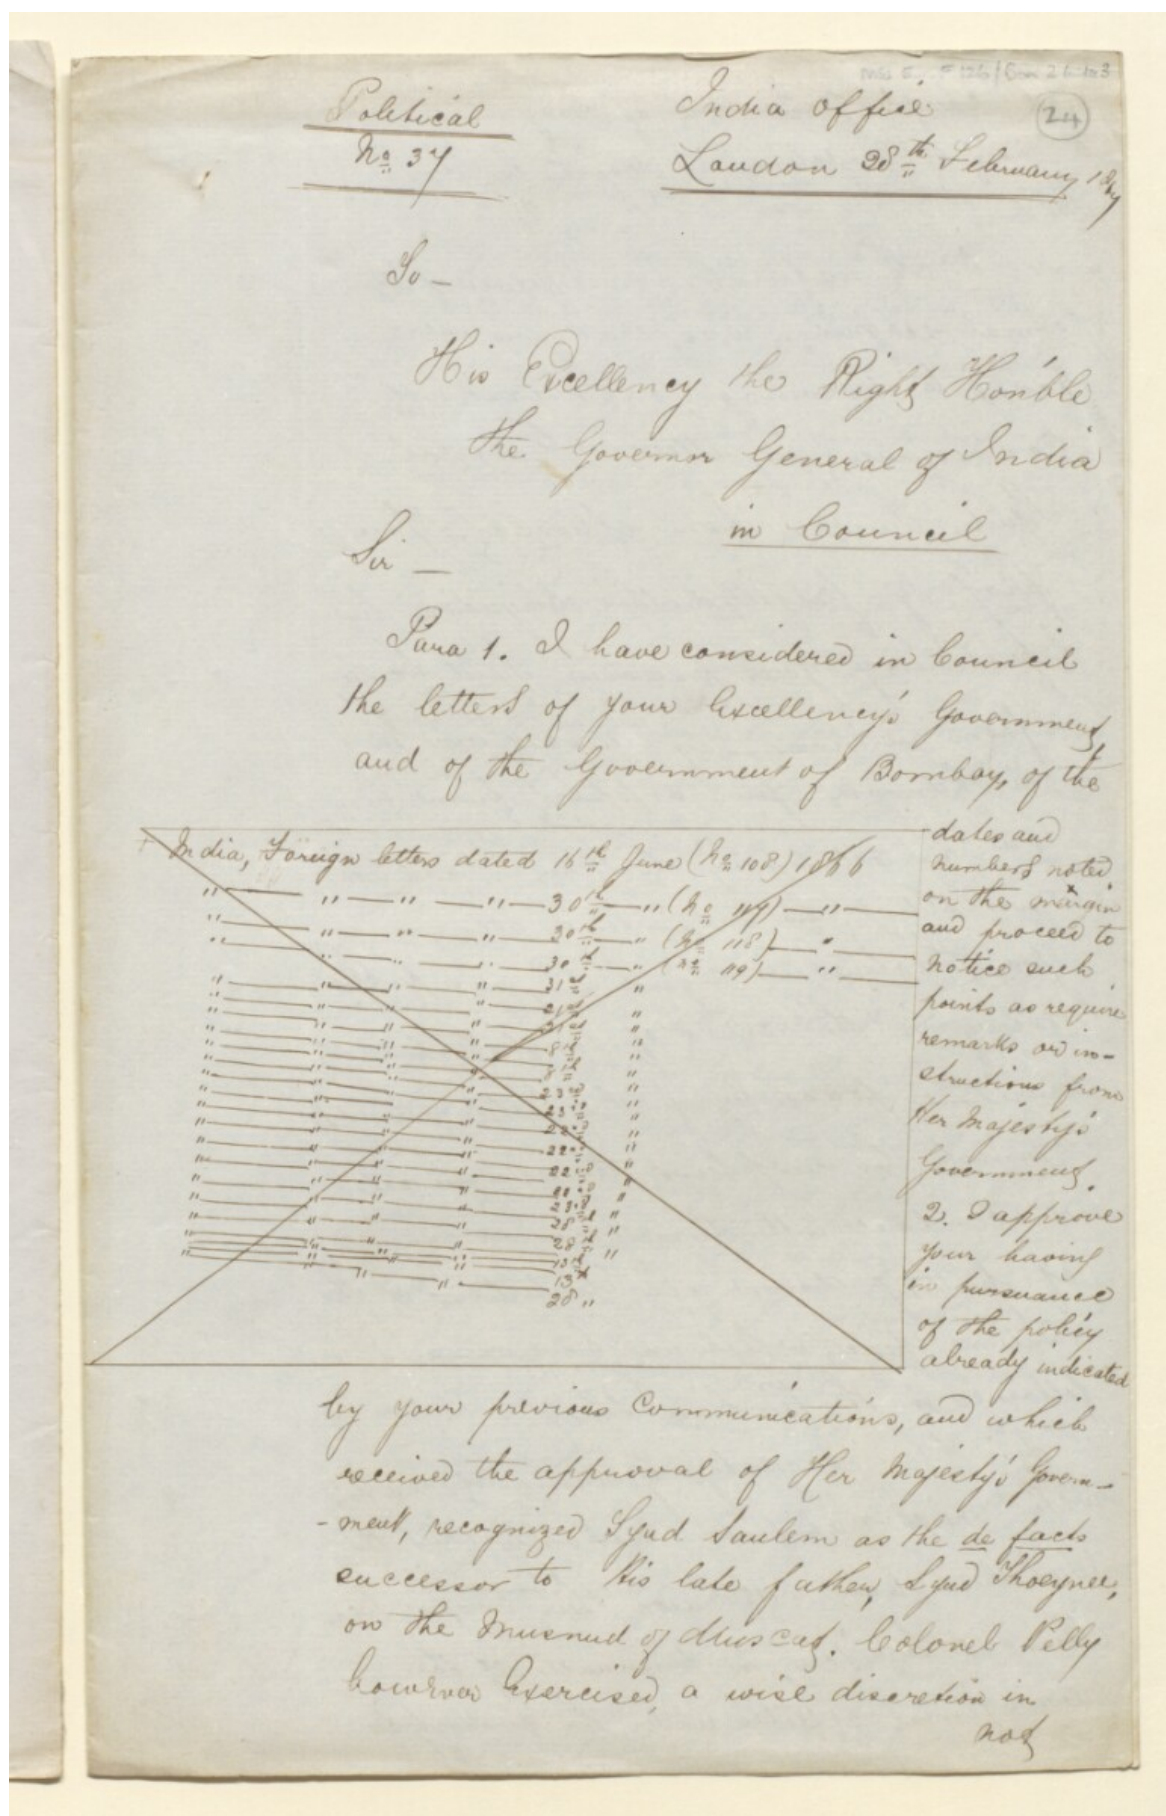 Mss Eur F126/
24
Political
No 37
India Office
London 28th February 1867
To —
His Excellency the Right Hon'ble
the Governor General of India
in Council
Sir —
Para 1. I have considered in Council
the letters of your Excellency's Government,
and of the Government of Bombay, of the
dates and
numbers noted
on the margin
and proceed to
notice such
points as require
remarks or in-
structions from
Her Majesty's
Government.
2. I approve
your having
in pursuance
of the policy
already indicated
+ India, Foreign letters dated 16th June (No 108) 1866
" — " — " — " — 30th — " (No 117) — " —
" — " — " — 30th — " (No 118) — "
" — " — " — 30th — " (No 119) — " —
" — " — " — 31st "
" — " — " — 21st "
" — " — " — "
" — " — " — 8th "
" — " — " — "
" — " — " — 23rd "
" — " — " — 23rd "
" — " — " — 22nd "
" — " — " — 22nd "
" — " — " — 22nd "
" — " — " — "
" — " — " — 23rd "
" — " — " — 28th "
" — " — " — 28th "
" — " — " — 13th "
" — " — " — 13th
" — " — " — 28 "
by your previous Communications, and which
received the approval of Her Majesty's Govern-
-ment, recognized Syud Saulem as the de facto
successor to His late father, Syud Thoeynee,
on the Musnud of Muscat. Colonel Pelly
however Exercised, a wise discretion in
not